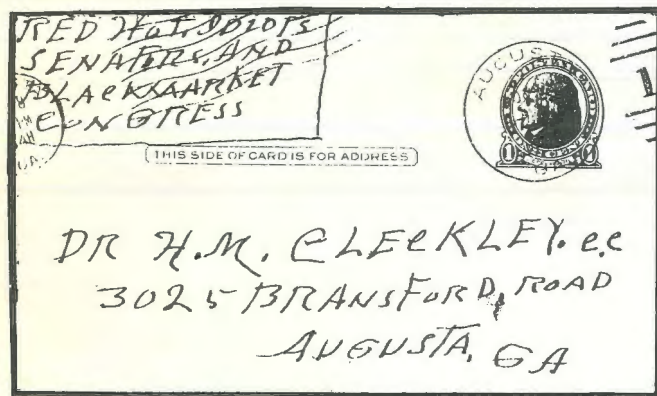 RED HOT, IDIOTS
SENATORS, AND
BLACKMARKET
CONGRESS
AUGUS
GA
1
1
THIS SIDE OF CARD IS FOR ADDRESS
DR H.M. CLECKLEY. C.C
3025 BRANSFORD, ROAD
AUGUSTA, GA